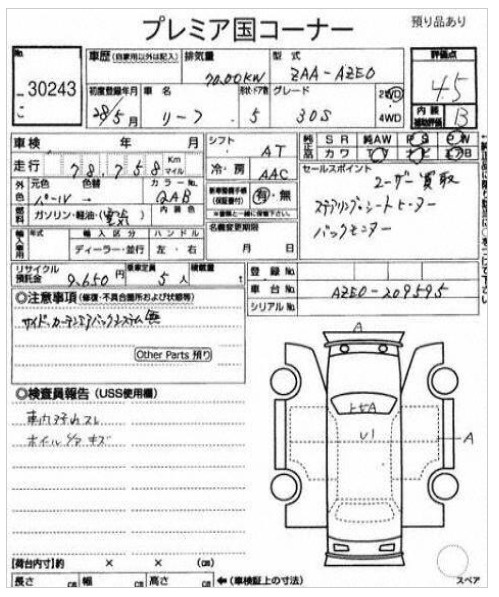 プレミア国コーナー
預り品あり
No.
30243
車歴(自家用以外は記入) 排気量 型式 評価点
70.00KW ZAA-AZE0 4.5
初度登録年月 車名 形状・ドア数 グレード 2WD
28/5月 リーフ 5 30S 4WD
内装補助評価 B
車検 年 月 シフト AT
純正品 SR 純AW PS PW
カワ TV ナビ エアB
走行 78,758 Km マイル
冷・房 AAC
セールスポイント
ユーザー買取
ステアリング・シートヒーター
バックモニター
外色 元色 色替 カラーNo.
パール QAB
燃料 ガソリン・軽油・(電気) 内装色
新車整備手帳(保証書付) 有・無
※書類と一緒に保管下さい。
輸入車用 年式 輸入区分 ハンドル
ディーラー・並行 左・右
名義変更期限
月 日
リサイクル預託金 9,650円 乗車定員 5人 積載量 t
登録No.
車台No. AZE0-209595
シリアルNo.
◎注意事項(修復・不具合箇所および状態等)
サイド・カーテンエアバックシステム無
Other Parts 預り
◎検査員報告(USS使用欄)
車内スレ
ホイルキズ
A
A
U1
A
【荷台内寸】約 × × (cm)
長さ cm 幅 cm 高さ cm ←(車検証上の寸法)
スペア